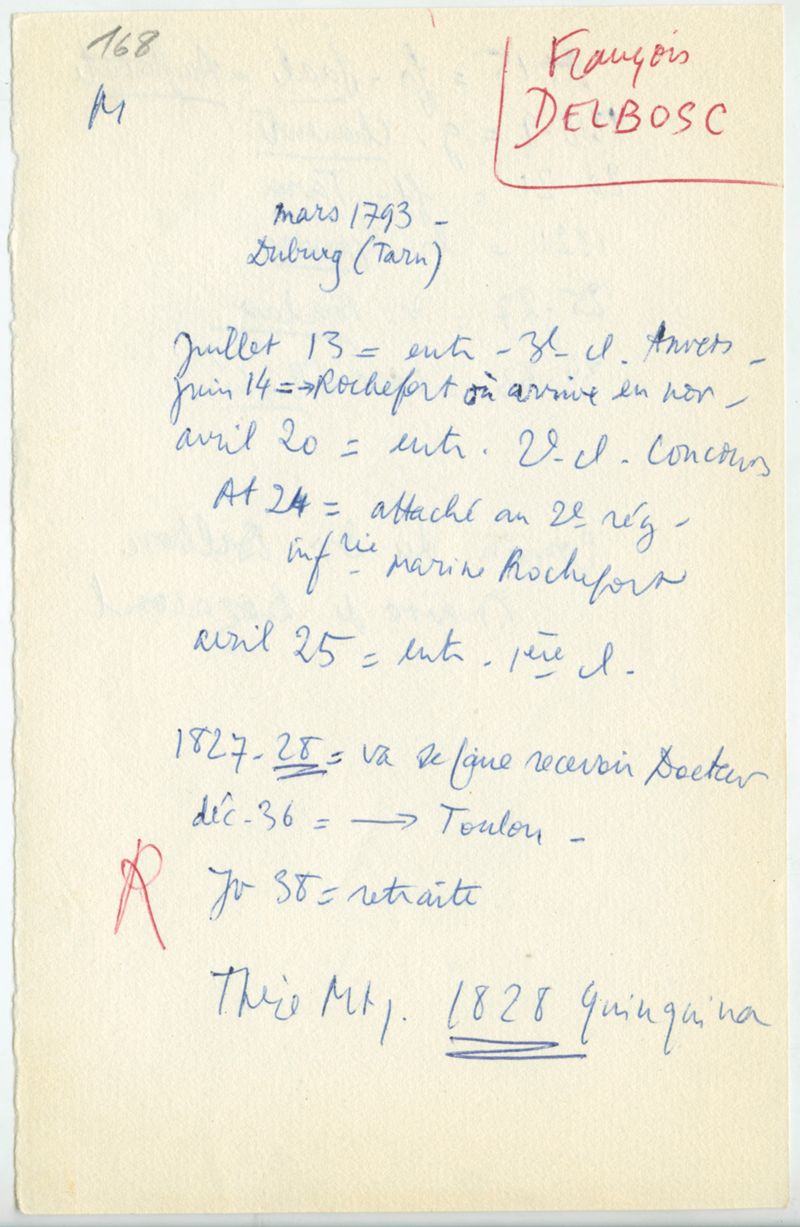 168
M
François
DELBOSC
mars 1793 -
Duburg (Tarn)
Juillet 13 = entr - 3e cl. Anvers -
juin 14 = → Rochefort où arrive en nov -
avril 20 = entr. 2e cl. Concours
At 24 = attaché au 2e rég -
infrie Marine Rochefort
avril 25 = entr. 1ère cl.
1827-28 = va se faire recevoir Docteur
déc-36 = → Toulon -
Jv 38 = retraite
R
Thèse Mtp. 1828 Quinquina